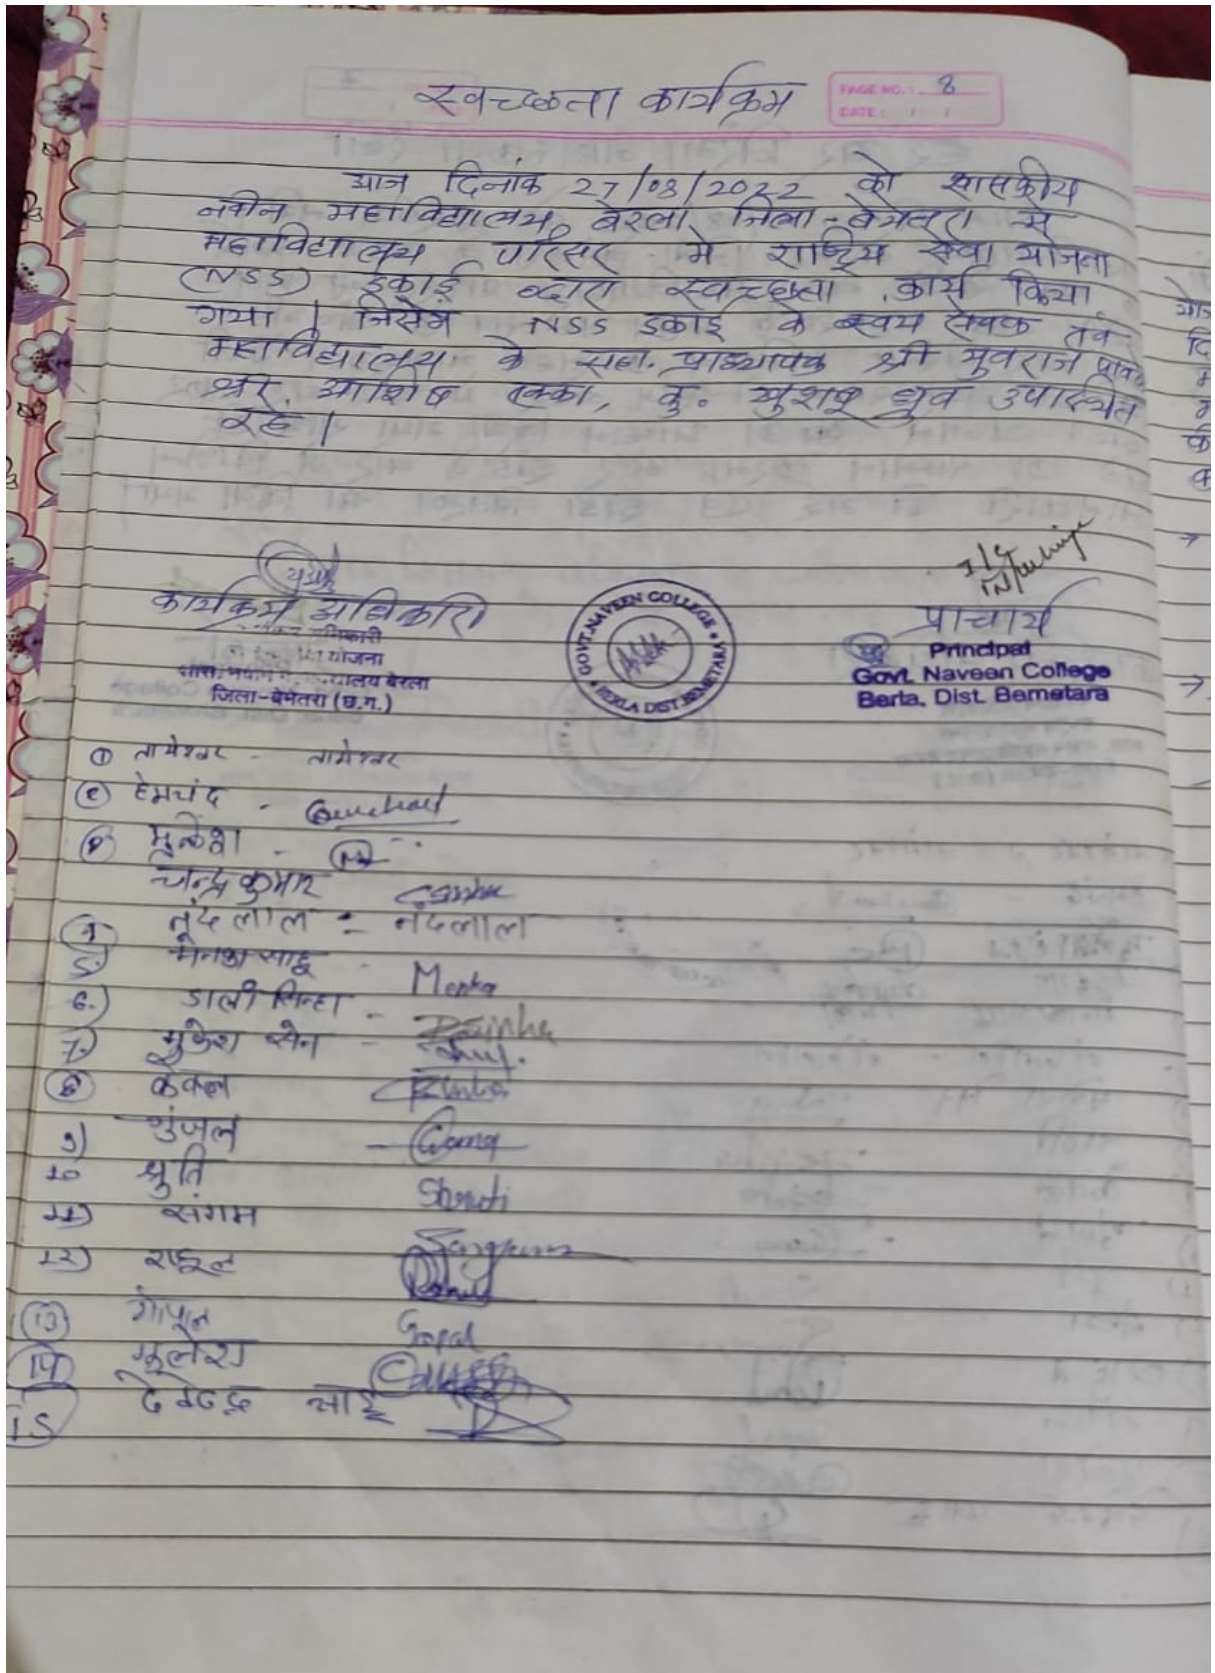 स्वच्छता कार्यक्रम
PAGE NO.: 8
DATE: / /
आज दिनांक 27/08/2022 को शासकीय
नवीन महाविद्यालय बेरला जिला-बेमेतरा में
महाविद्यालय परिसर में राष्ट्रिय सेवा योजना
(NSS) इकाई व्दारा स्वच्छता कार्य किया
गया । जिसमे NSS इकाई के स्वयं सेवक
महाविद्यालय के सहा. प्राध्यापक श्री युवराज
श्री. आशिष टक्का, कु. खुशबू ध्रुव उपस्थित
रहे ।
I/C
कार्यक्रम अधिकारी
प्राचार्य
योजना
बेरला
जिला-बेमेतरा (छ.ग.)
GOVT. NAVEEN COLLEGE
BERLA DIST. BEMETARA
Principal
Govt. Naveen College
Berla, Dist. Bemetara
① तामेश्वर - तामेश्वर
② हेमचंद -
मुकेश -
चन्द्रकुमार
नंदलाल - नंदलाल
5.) मेनका साहू - Menka
6.) डाली सिन्हा - DSinha
7.) मुकेश सेन -
⑧
9) गुंजल -
10 श्रुति Shruti
11) संगम Sangam
12) राहुल Rahul
(13) गोपाल Gopal
(14)
15 देवेन्द्र साहू